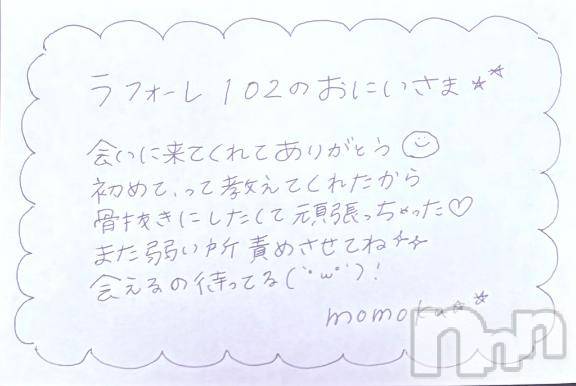 ラフォーレ 102のおにいさま☆☆
会いに来てくれてありがとう☺
初めて、って教えてくれたから
骨抜きにしたくて頑張っちゃった♡
また弱い所責めさせてね☆☆
会えるの待ってる(*°ω°*)!
momoka☆☆
nnn